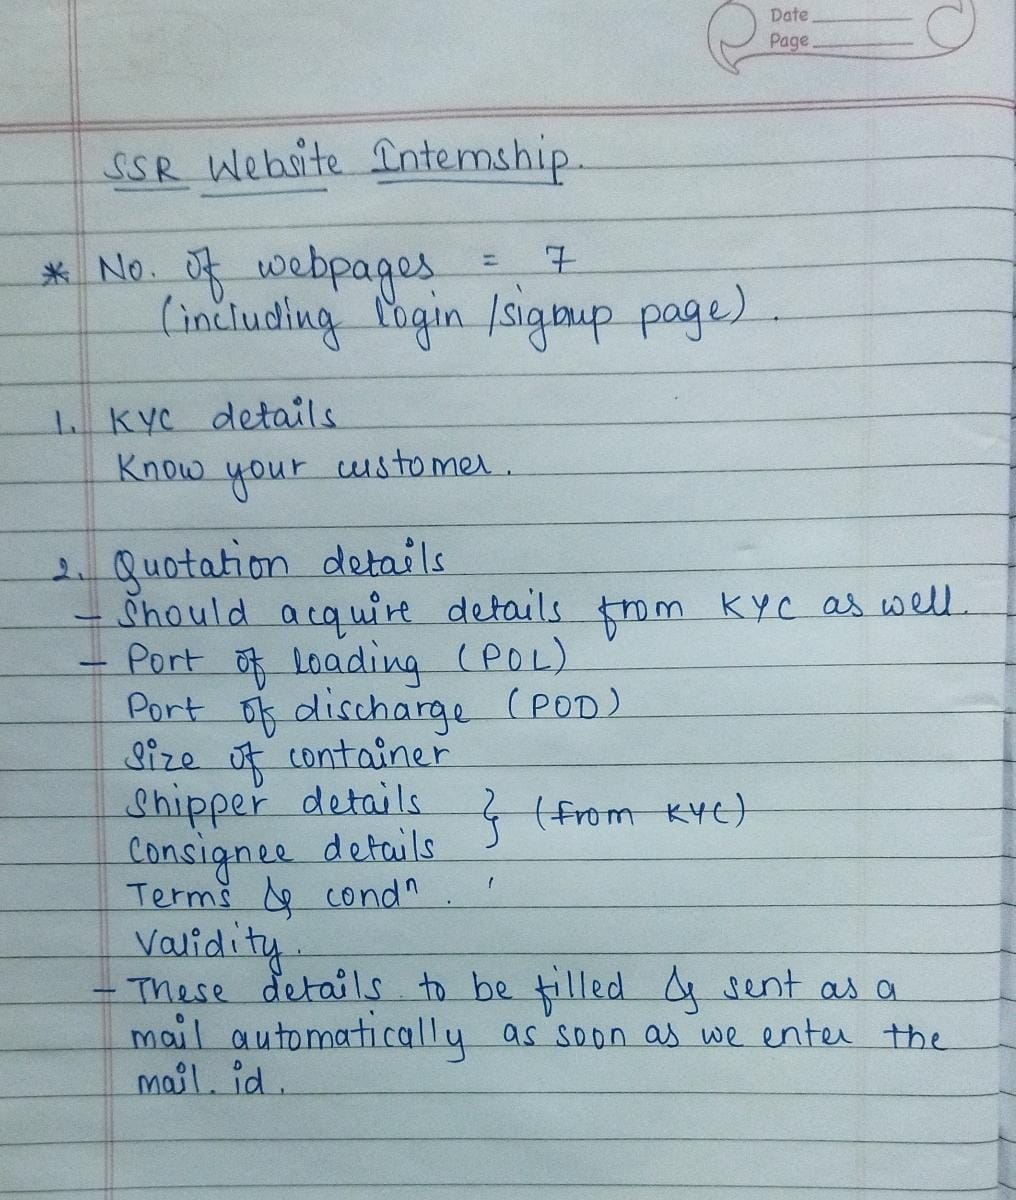 Date
Page
SSR Website Internship.
* No. of webpages = 7
(including login /signup page).
1. KYC details
Know your customer.
2. Quotation details
- Should acquire details from KYC as well.
- Port of loading (POL)
Port of discharge (POD)
Size of container
Shipper details } (from KYC)
Consignee details
Terms & condⁿ.
Validity.
- These details to be filled & sent as a
mail automatically as soon as we enter the
mail. id.